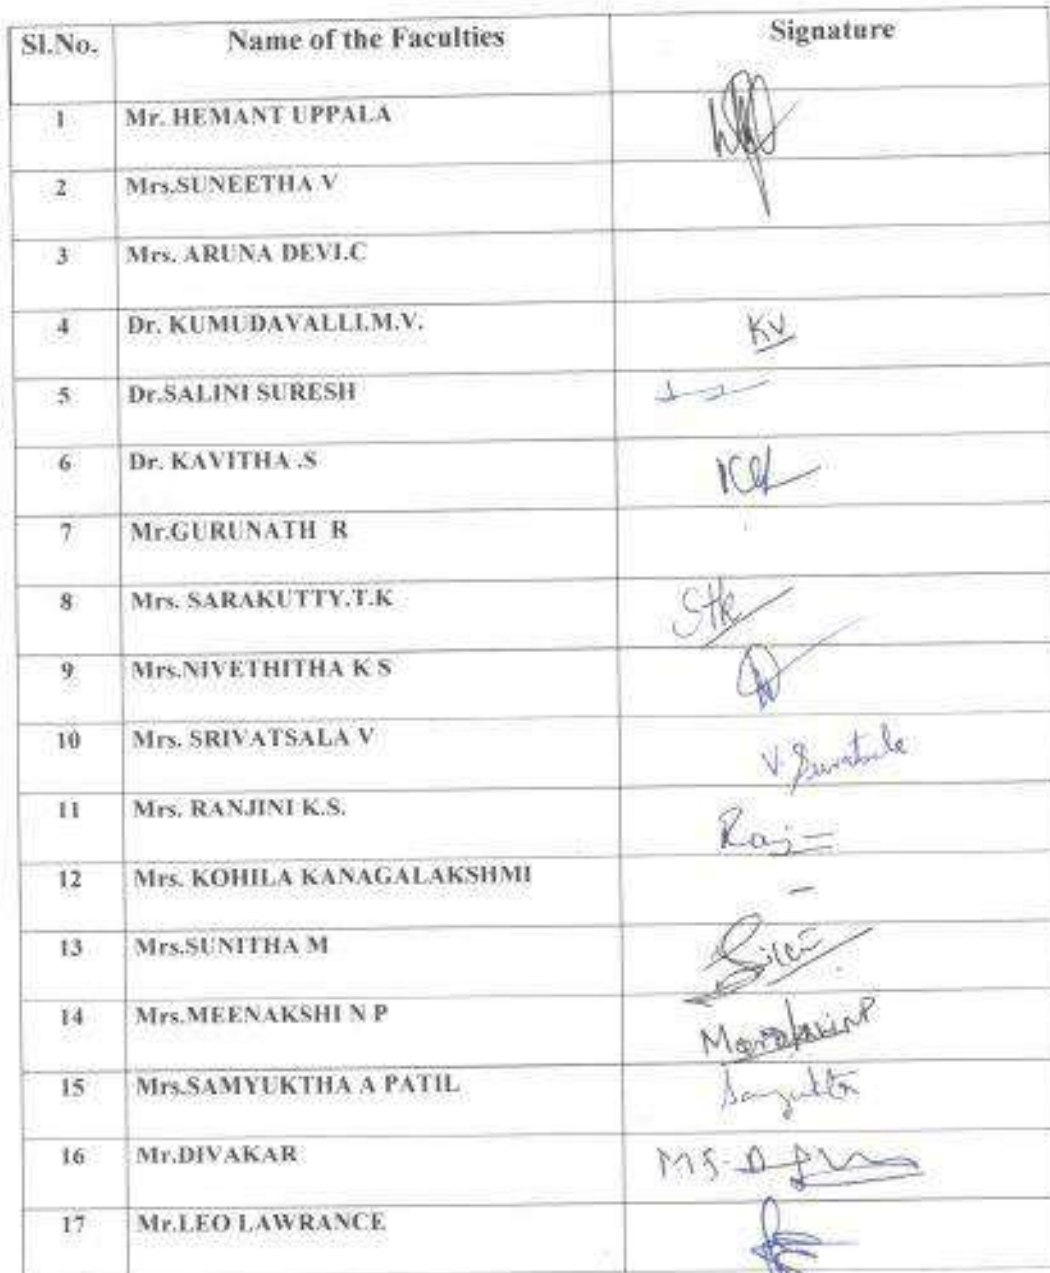 Sl.No. Name of the Faculties Signature
1 Mr. HEMANT UPPALA
2 Mrs.SUNEETHA V
3 Mrs. ARUNA DEVI.C
4 Dr. KUMUDAVALLI.M.V. KV
5 Dr.SALINI SURESH
6 Dr. KAVITHA .S
7 Mr.GURUNATH R
8 Mrs. SARAKUTTY.T.K Stk
9 Mrs.NIVETHITHA K S
10 Mrs. SRIVATSALA V V.
11 Mrs. RANJINI K.S. Ranj
12 Mrs. KOHILA KANAGALAKSHMI –
13 Mrs.SUNITHA M
14 Mrs.MEENAKSHI N P Meenakshi NP
15 Mrs.SAMYUKTHA A PATIL
16 Mr.DIVAKAR
17 Mr.LEO LAWRANCE